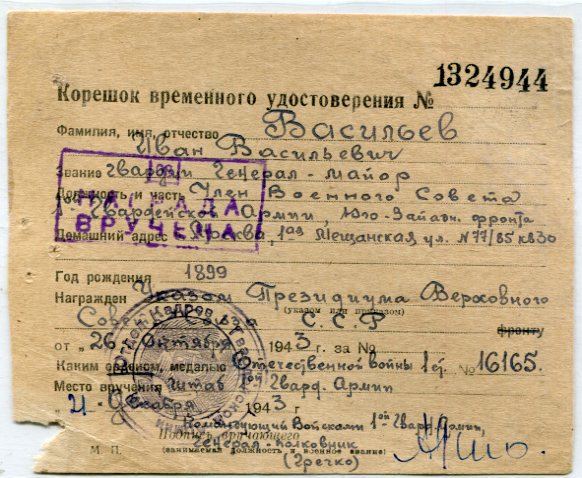 1324944
Корешок временного удостоверения №
Фамилия, имя, отчество Васильев
Иван Васильевич
Звание гвардии Генерал-майор
Должность и часть Член Военного Совета
1ой Гвардейской Армии, Юго-Западн. фронта
НАГРАДА
ВРУЧЕНА
Домашний адрес Москва, 1ая Мещанская ул. №77/85 кв30
Год рождения 1899
Награжден Указом Президиума Верховного
(указом или приказом)
Совета С.С.С.Р.
фронту
от "26" Октября 1943 г. за №
Каким орденом, медалью Отечественной войны 1 ст. № 16165.
Место вручения Штаб 1 Гвард. Армии
"4" Декабря 1943 г.
Командующий Войсками 1ой Гвард. Армии,
Подпись вручающего
Генерал-полковник
М. П. (занимаемая должность и военное звание)
(Гречко)